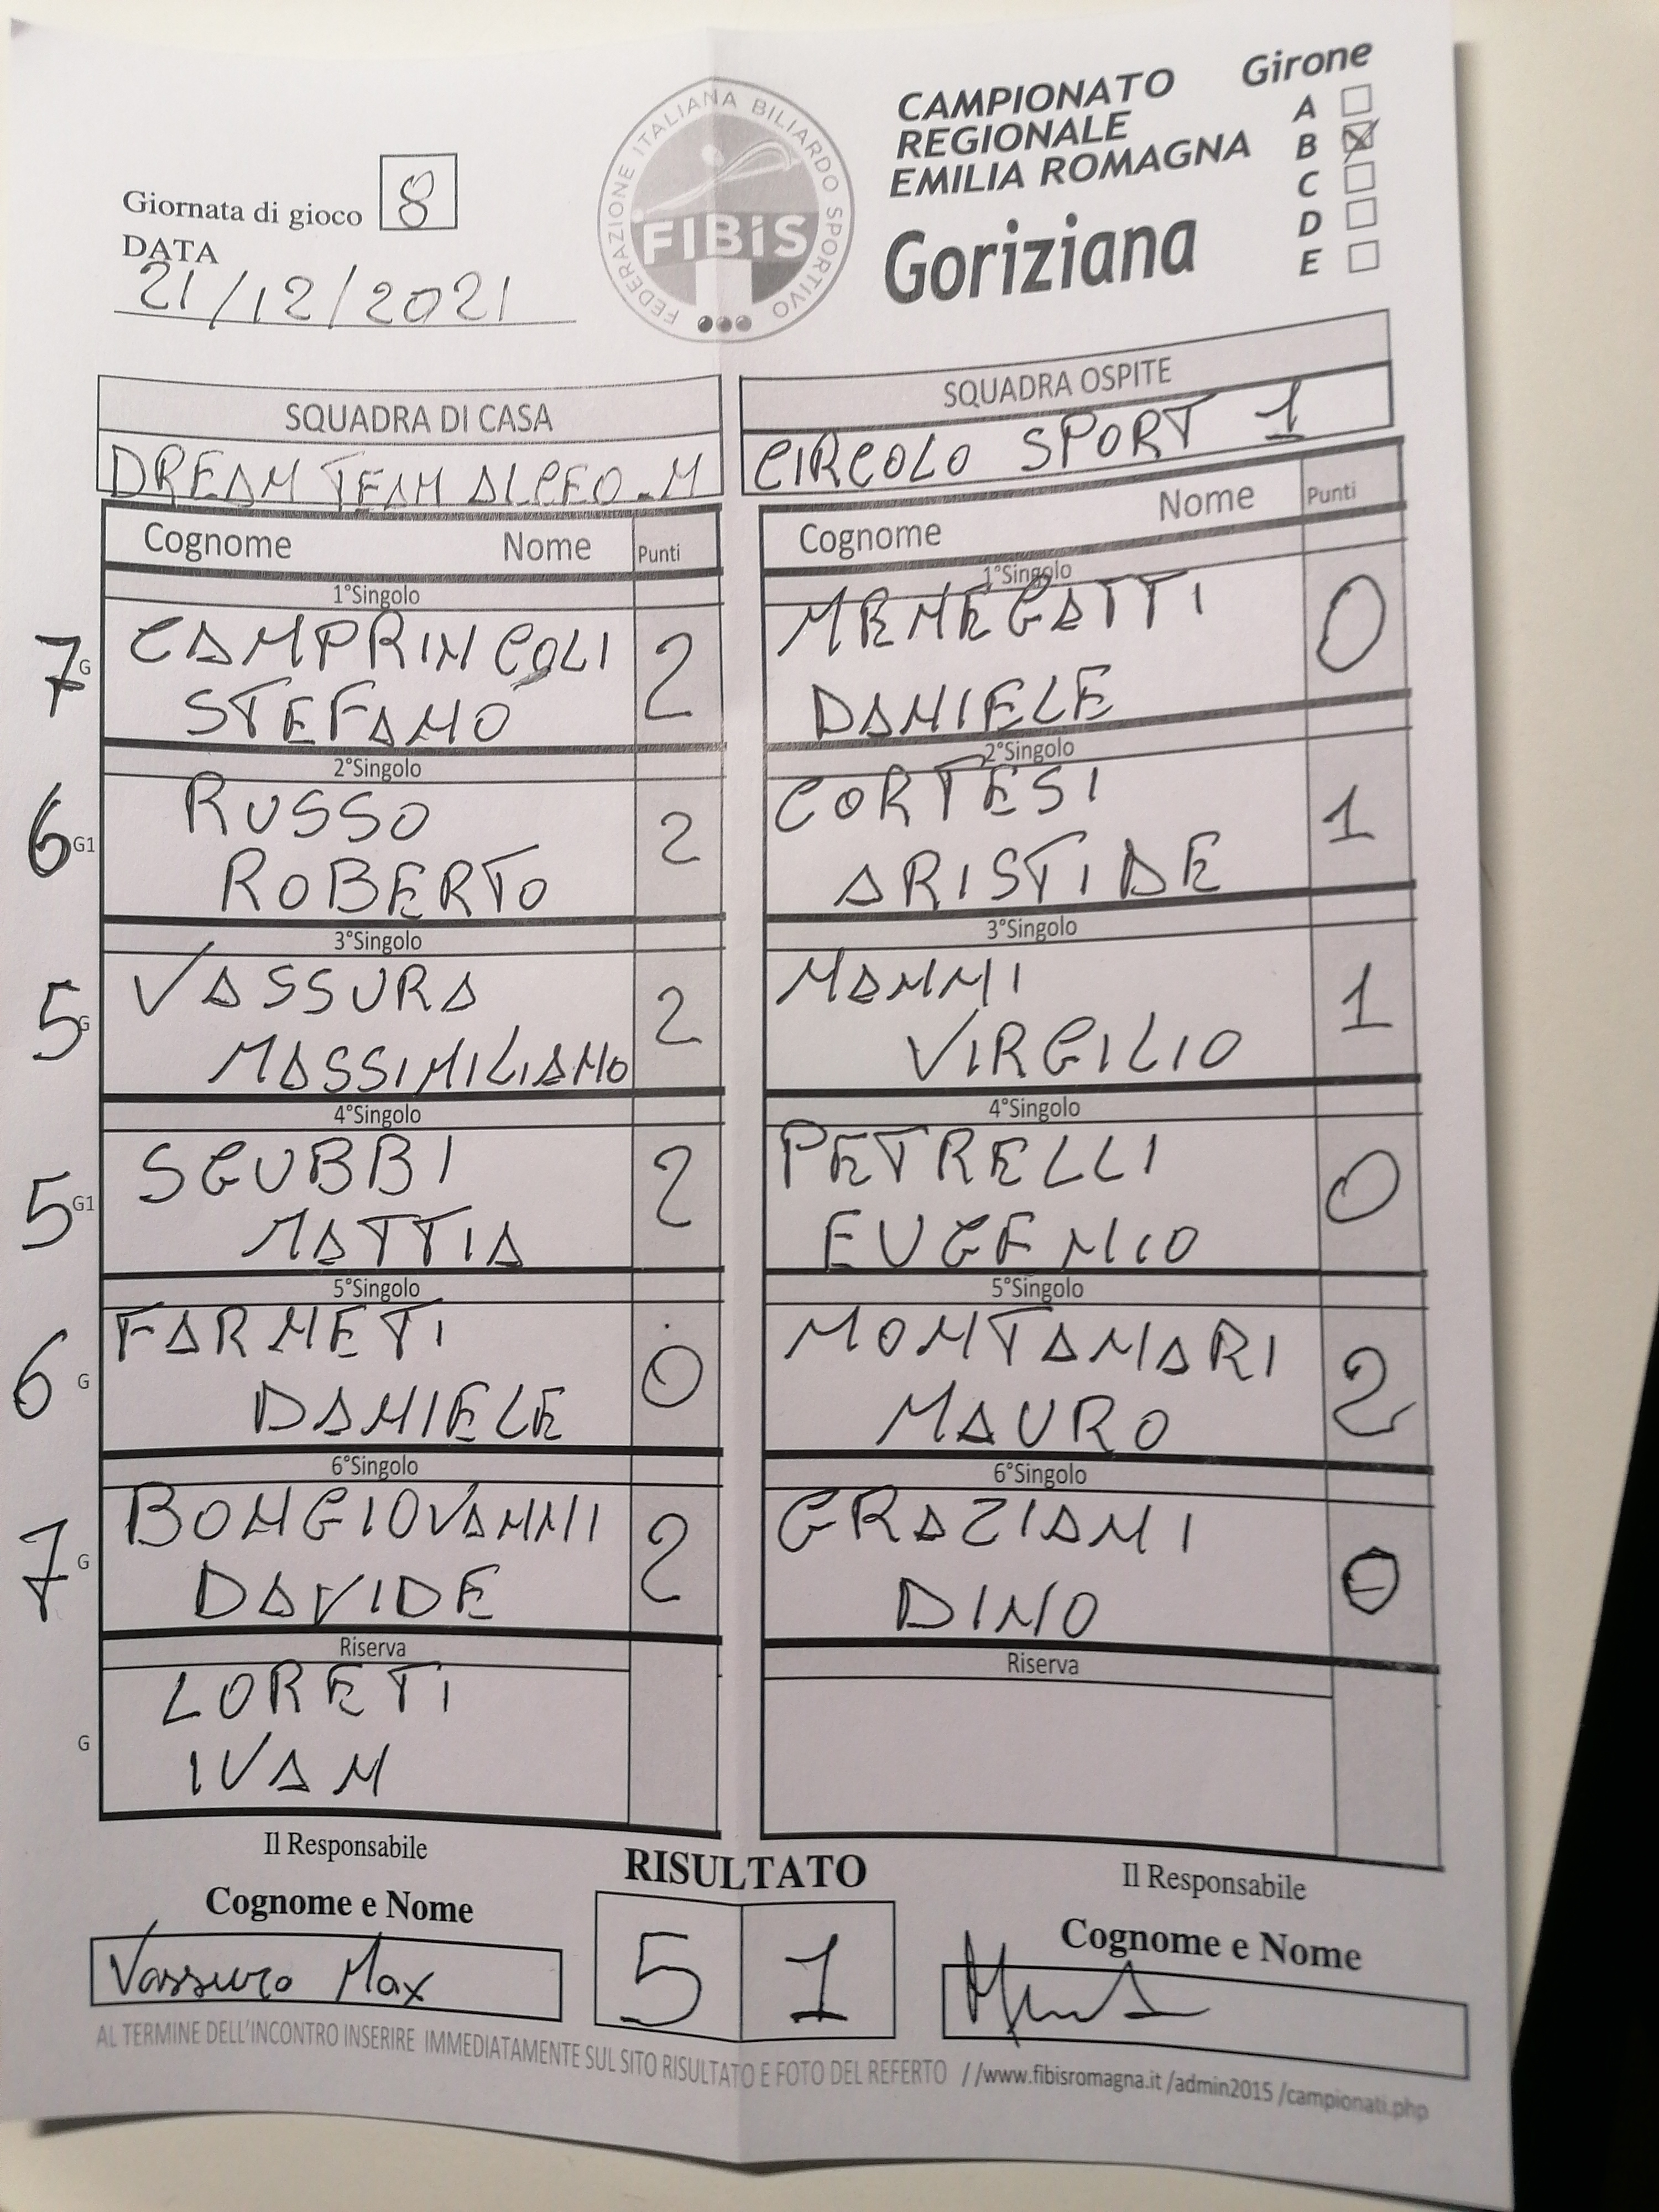 CAMPIONATO
REGIONALE
EMILIA ROMAGNA
Goriziana
Girone
A
B
C
D
E
FEDERAZIONE ITALIANA BILIARDO SPORTIVO
FIBiS
Giornata di gioco 8
DATA
21/12/2021
SQUADRA DI CASA
DREAM TEAM ALCEO - M
SQUADRA OSPITE
CIRCOLO SPORT 1
Cognome Nome Punti
Cognome Nome Punti
1°Singolo
7 G CAMPRINCOLI 2
STEFANO
1°Singolo
MENEGATTI 0
DANIELE
2°Singolo
6 G1 RUSSO 2
ROBERTO
2°Singolo
CORTESI 1
ARISTIDE
3°Singolo
5 G VASSURA 2
MASSIMILIANO
3°Singolo
MAMMI 1
VIRGILIO
4°Singolo
5 G1 SGUBBI 2
MATTIA
4°Singolo
PETRELLI 0
EUGENIO
5°Singolo
6 G FARNETI 0
DANIELE
5°Singolo
MONTANARI 2
MAURO
6°Singolo
7 G BONGIOVANNI 2
DAVIDE
6°Singolo
GRAZIANI 0
DINO
Riserva
G LORETI
IVAN
Riserva
Il Responsabile
Cognome e Nome
Vassura Max
RISULTATO
5 1
Il Responsabile
Cognome e Nome
AL TERMINE DELL'INCONTRO INSERIRE IMMEDIATAMENTE SUL SITO RISULTATO E FOTO DEL REFERTO //www.fibisromagna.it /admin2015 /campionati.php